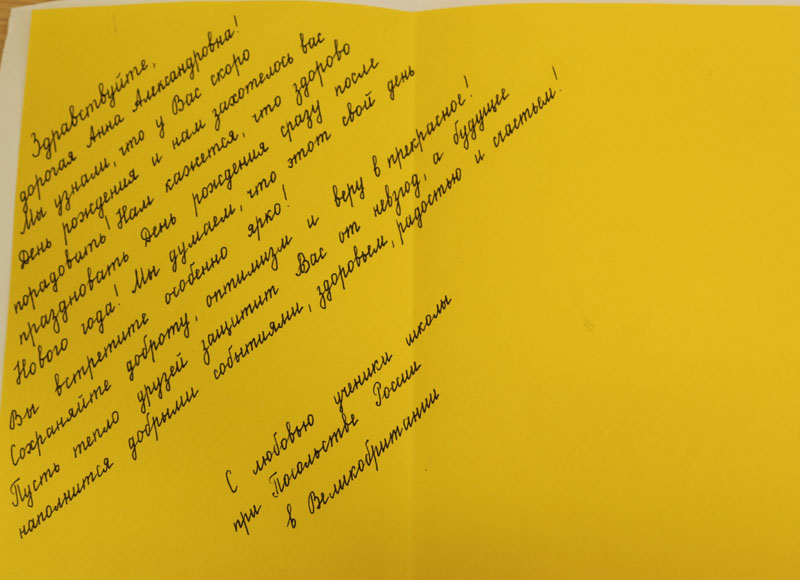 Здравствуйте,
дорогая Анна Александровна!
Мы узнали, что у Вас скоро
День рождения и нам захотелось вас
порадовать! Нам кажется, что здорово
праздновать День рождения сразу после
Нового года! Мы думаем, что этот свой день
Вы встретите особенно ярко!
Сохраняйте доброту, оптимизм и веру в прекрасное!
Пусть тепло друзей защитит Вас от невзгод, а будущее
наполнится добрыми событиями, здоровьем, радостью и счастьем!
С любовью ученики школы
при Посольстве России
в Великобритании